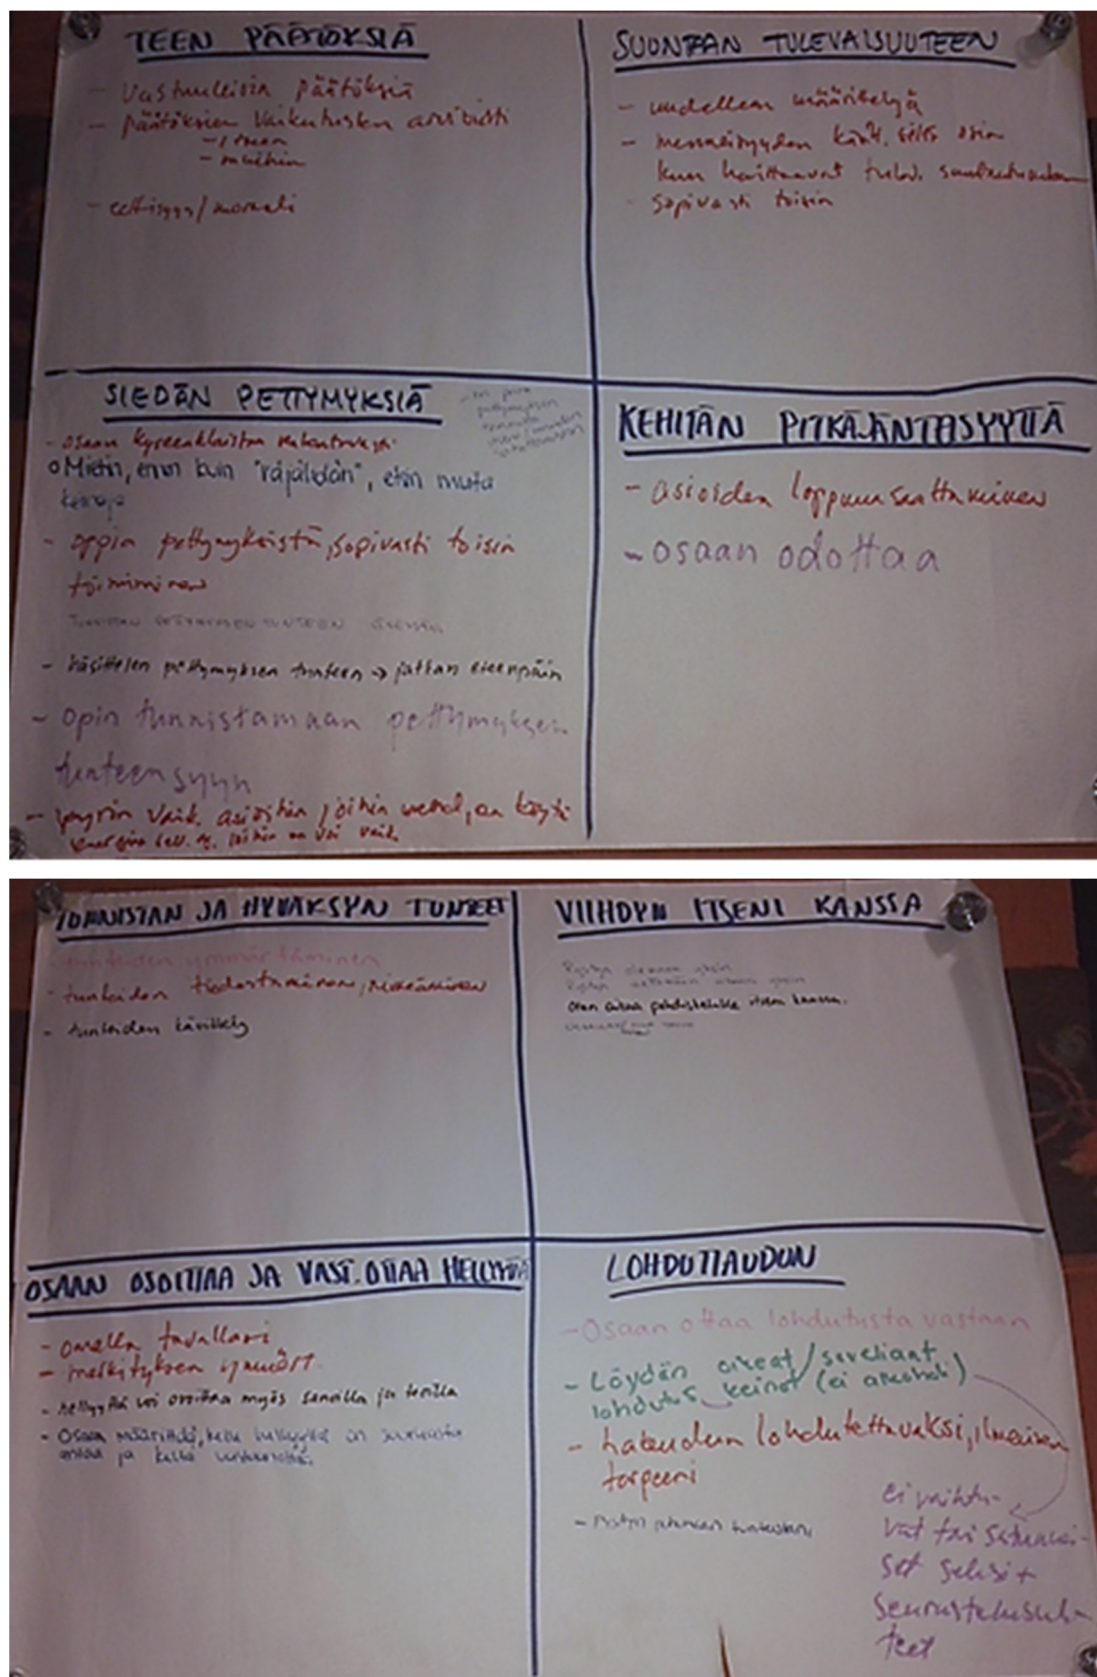 TEEN PÄÄTÖKSIÄ
- Vastuullisia päätöksiä
- päätöksien vaikutusten arviointi
- itseen
- muihin
- eettisyys/moraali
SUUNTAAN TULEVAISUUTEEN
- uudelleen määrittelyä
- menneisyyden käsit. siltä osin
kun haittaavat tulev.
sopivasti toisin
SIEDÄN PETTYMYKSIÄ
- osaan kyseenalaistaa
o Mietin, ennen kuin "räjähdän", etsin muita
keinoja
- oppia pettymyksistä, sopivasti toisin
toiminen
TUNNISTAN PETTYMYKSEN TUNTEEN
- käsittelen pettymyksen tunteen → jatkan eteenpäin
- opin tunnistamaan pettymyksen
tunteen syyn
- pyrin vaik. asioihin joihin mahd, en käytä
energiaa joihin en voi vaik.
KEHITÄN PITKÄJÄNTEISYYTTÄ
- asioiden loppuun saattaminen
- osaan odottaa
TUNNISTAN JA HYVÄKSYN TUNTEET
- tunteiden ymmärtäminen
- tunteiden tiedostaminen, nimeäminen
- tunteiden käsittely
VIIHDYN ITSENI KANSSA
Pystyn olemaan yksin
Otan aikaa pohdiskelulle itseni kanssa.
OSAAN OSOITTAA JA VAST.OTTAA HELLYYTTÄ
- omalla tavallani
- merkityksen ymmärt.
- hellyyttä voi osoittaa myös sanoilla ja teoilla
- Osaan määritellä, kelle hellyyttä on
antaa ja keltä vastaanottaa
LOHDUTTAUDUN
- Osaan ottaa lohdutusta vastaan
- Löydän oikeat/soveliaat
lohdutuskeinot (ei alkoholi)
- hakeudun lohdutettavaksi, ilmaisen
tarpeeni
- Pystyn
ei vaihtu-
vat tai satunnai-
set seksi +
seurustelusuh-
teet